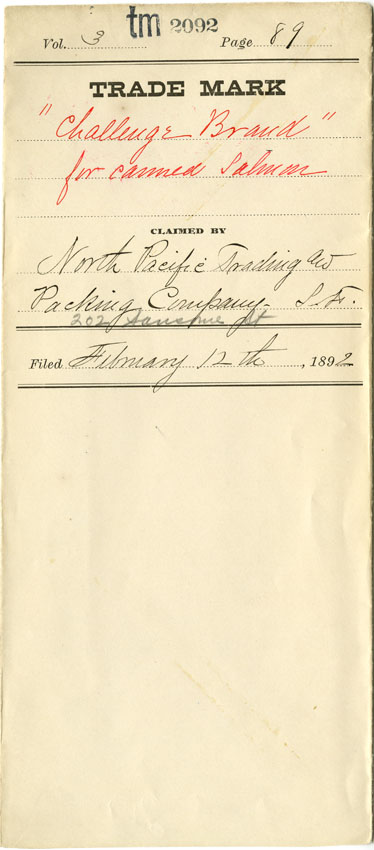 tm 2092
Vol. 3 Page 89
TRADE MARK
"Challenge Brand"
for canned Salmon
CLAIMED BY
North Pacific Trading and
Packing Company - S. F.
202 Sansome St
Filed February 12th, 1892